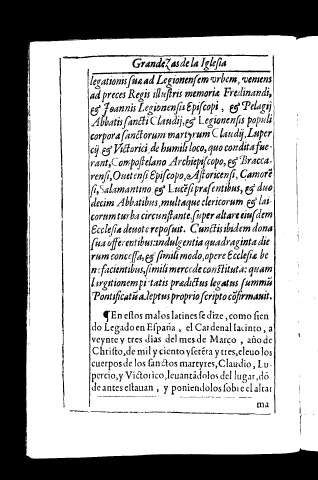 Grandezas de la Iglesia
legationis suæ ad Legionensem vrbem, veniens
ad preces Regis illustris memoriæ Fredinandi,
& Joannis Legionensis Episcopi, & Pelagij
Abbatis sancti Claudij, & Legionensis populi
corpora sanctorum martyrum Claudij, Luper
cij & Victorici de humili loco, quo condita fue-
rant, Compostelano Archiepiscopo, & Bracca-
rensi, Ouetensi Episcopo, Astoricensi, Camorē
si, Salamantino & Lucēsi præsentibus, & duo
decim Abbatibus, multaque clericorum & lai
corum turba circunstante, super altare eiusdem
Ecclesiæ deuote reposuit. Cunctis ibidem dona
sua offerentibus indulgentia quadraginta die
rum concessa, & simili modo, opere Ecclesiæ be
nefacientibus, simili mercede constituta: quam
largitionem pietatis prædictus legatus summū
Pontificatū adeptus proprio scripto cōfirmauit.
¶ En estos malos latines se dize, como sien
do Legado en España, el Cardenal Iacinto, a
veynte y tres dias del mes de Março, año de
Christo, de mil y ciento y setēta y tres, eleuo los
cuerpos de los sanctos martyres, Claudio, Lu-
percio, y Victorico, leuantādolos del lugar, dō
de antes estauan, y poniendolos sobre el altar
ma